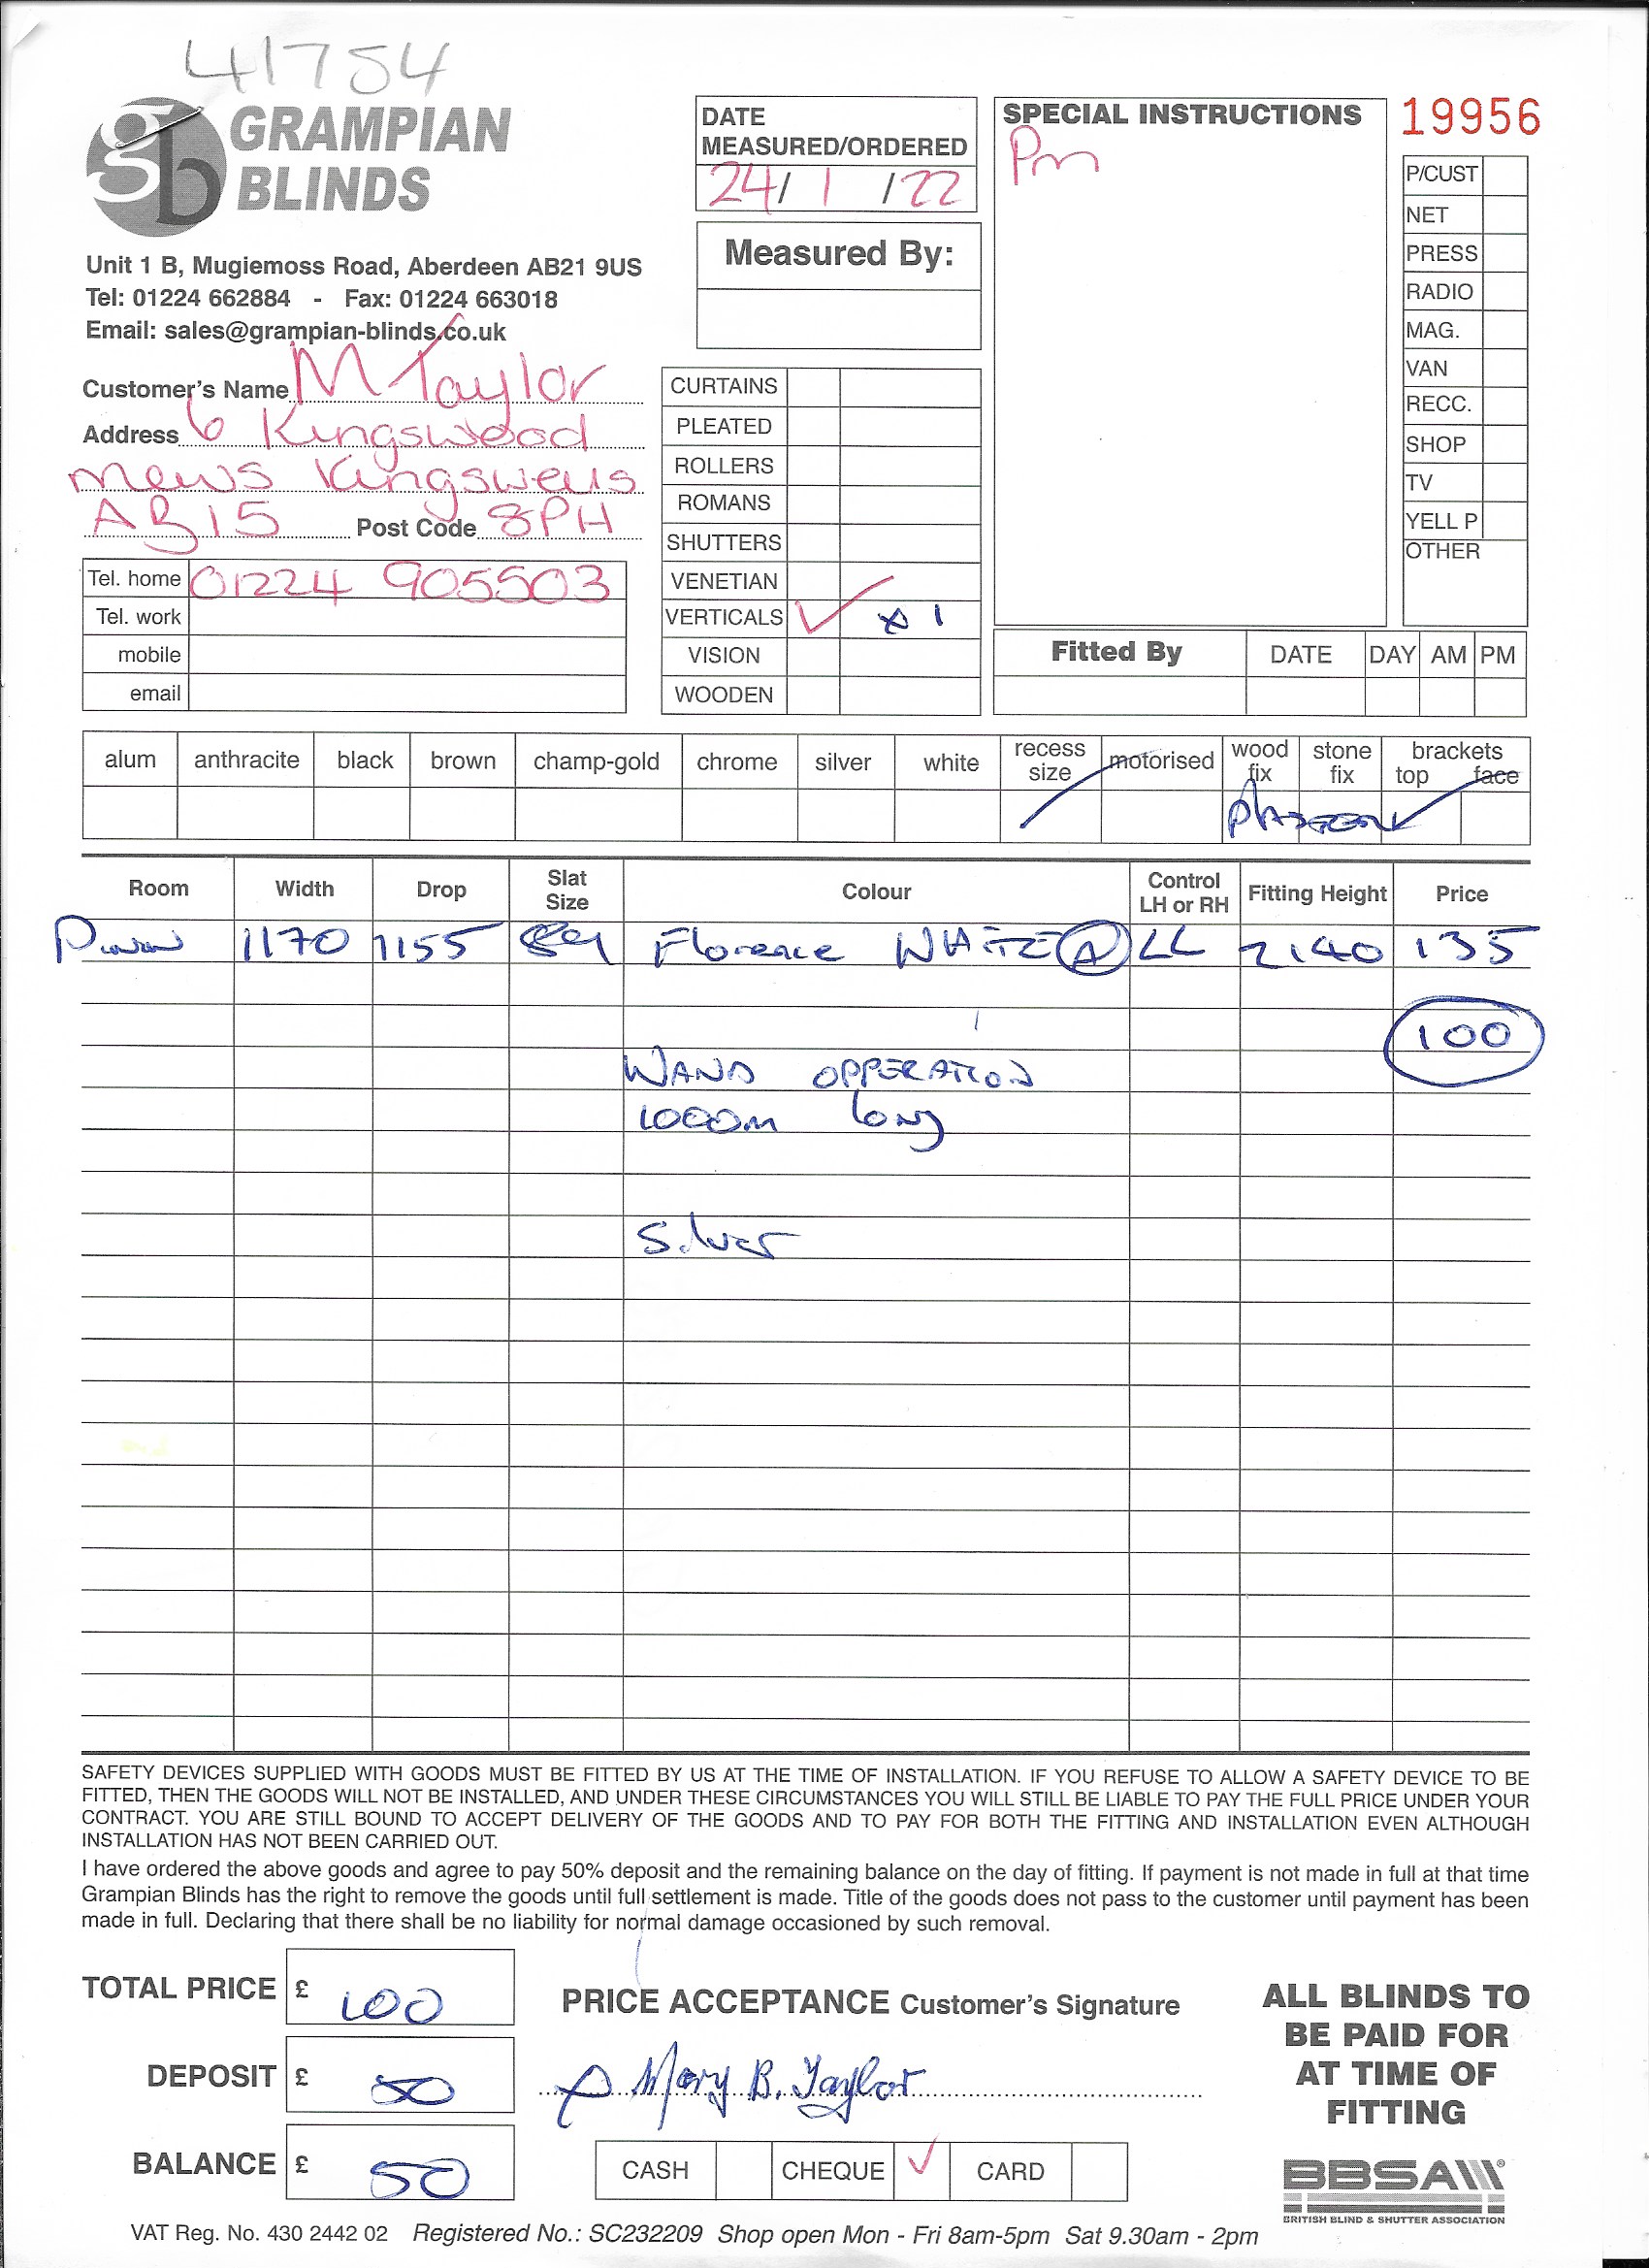 41754
gb GRAMPIAN
BLINDS
Unit 1 B, Mugiemoss Road, Aberdeen AB21 9US
Tel: 01224 662884 - Fax: 01224 663018
Email: sales@grampian-blinds.co.uk
Customer's Name M Taylor
Address 6 Kingswood
Mews Kingswells
AB15 Post Code 8PH
Tel. home 01224 905503
Tel. work
mobile
email
DATE
MEASURED/ORDERED
24/ 1 /22
Measured By:
CURTAINS
PLEATED
ROLLERS
ROMANS
SHUTTERS
VENETIAN
VERTICALS ✓ x 1
VISION
WOODEN
SPECIAL INSTRUCTIONS
Pm
19956
P/CUST
NET
PRESS
RADIO
MAG.
VAN
RECC.
SHOP
TV
YELL P
OTHER
Fitted By DATE DAY AM PM
alum anthracite black brown champ-gold chrome silver white recess size motorised wood fix stone fix brackets top face
Room Width Drop Slat Size Colour Control LH or RH Fitting Height Price
1170 1155 89 Florence WHITE A LL 2140 135
100
WAND OPPERATION
1000m long
Silver
SAFETY DEVICES SUPPLIED WITH GOODS MUST BE FITTED BY US AT THE TIME OF INSTALLATION. IF YOU REFUSE TO ALLOW A SAFETY DEVICE TO BE
FITTED, THEN THE GOODS WILL NOT BE INSTALLED, AND UNDER THESE CIRCUMSTANCES YOU WILL STILL BE LIABLE TO PAY THE FULL PRICE UNDER YOUR
CONTRACT. YOU ARE STILL BOUND TO ACCEPT DELIVERY OF THE GOODS AND TO PAY FOR BOTH THE FITTING AND INSTALLATION EVEN ALTHOUGH
INSTALLATION HAS NOT BEEN CARRIED OUT.
I have ordered the above goods and agree to pay 50% deposit and the remaining balance on the day of fitting. If payment is not made in full at that time
Grampian Blinds has the right to remove the goods until full settlement is made. Title of the goods does not pass to the customer until payment has been
made in full. Declaring that there shall be no liability for normal damage occasioned by such removal.
TOTAL PRICE £ 100
DEPOSIT £ 50
BALANCE £ 50
PRICE ACCEPTANCE Customer's Signature
Mary B. Taylor
CASH CHEQUE ✓ CARD
ALL BLINDS TO
BE PAID FOR
AT TIME OF
FITTING
BBSA
BRITISH BLIND & SHUTTER ASSOCIATION
VAT Reg. No. 430 2442 02 Registered No.: SC232209 Shop open Mon - Fri 8am-5pm Sat 9.30am - 2pm